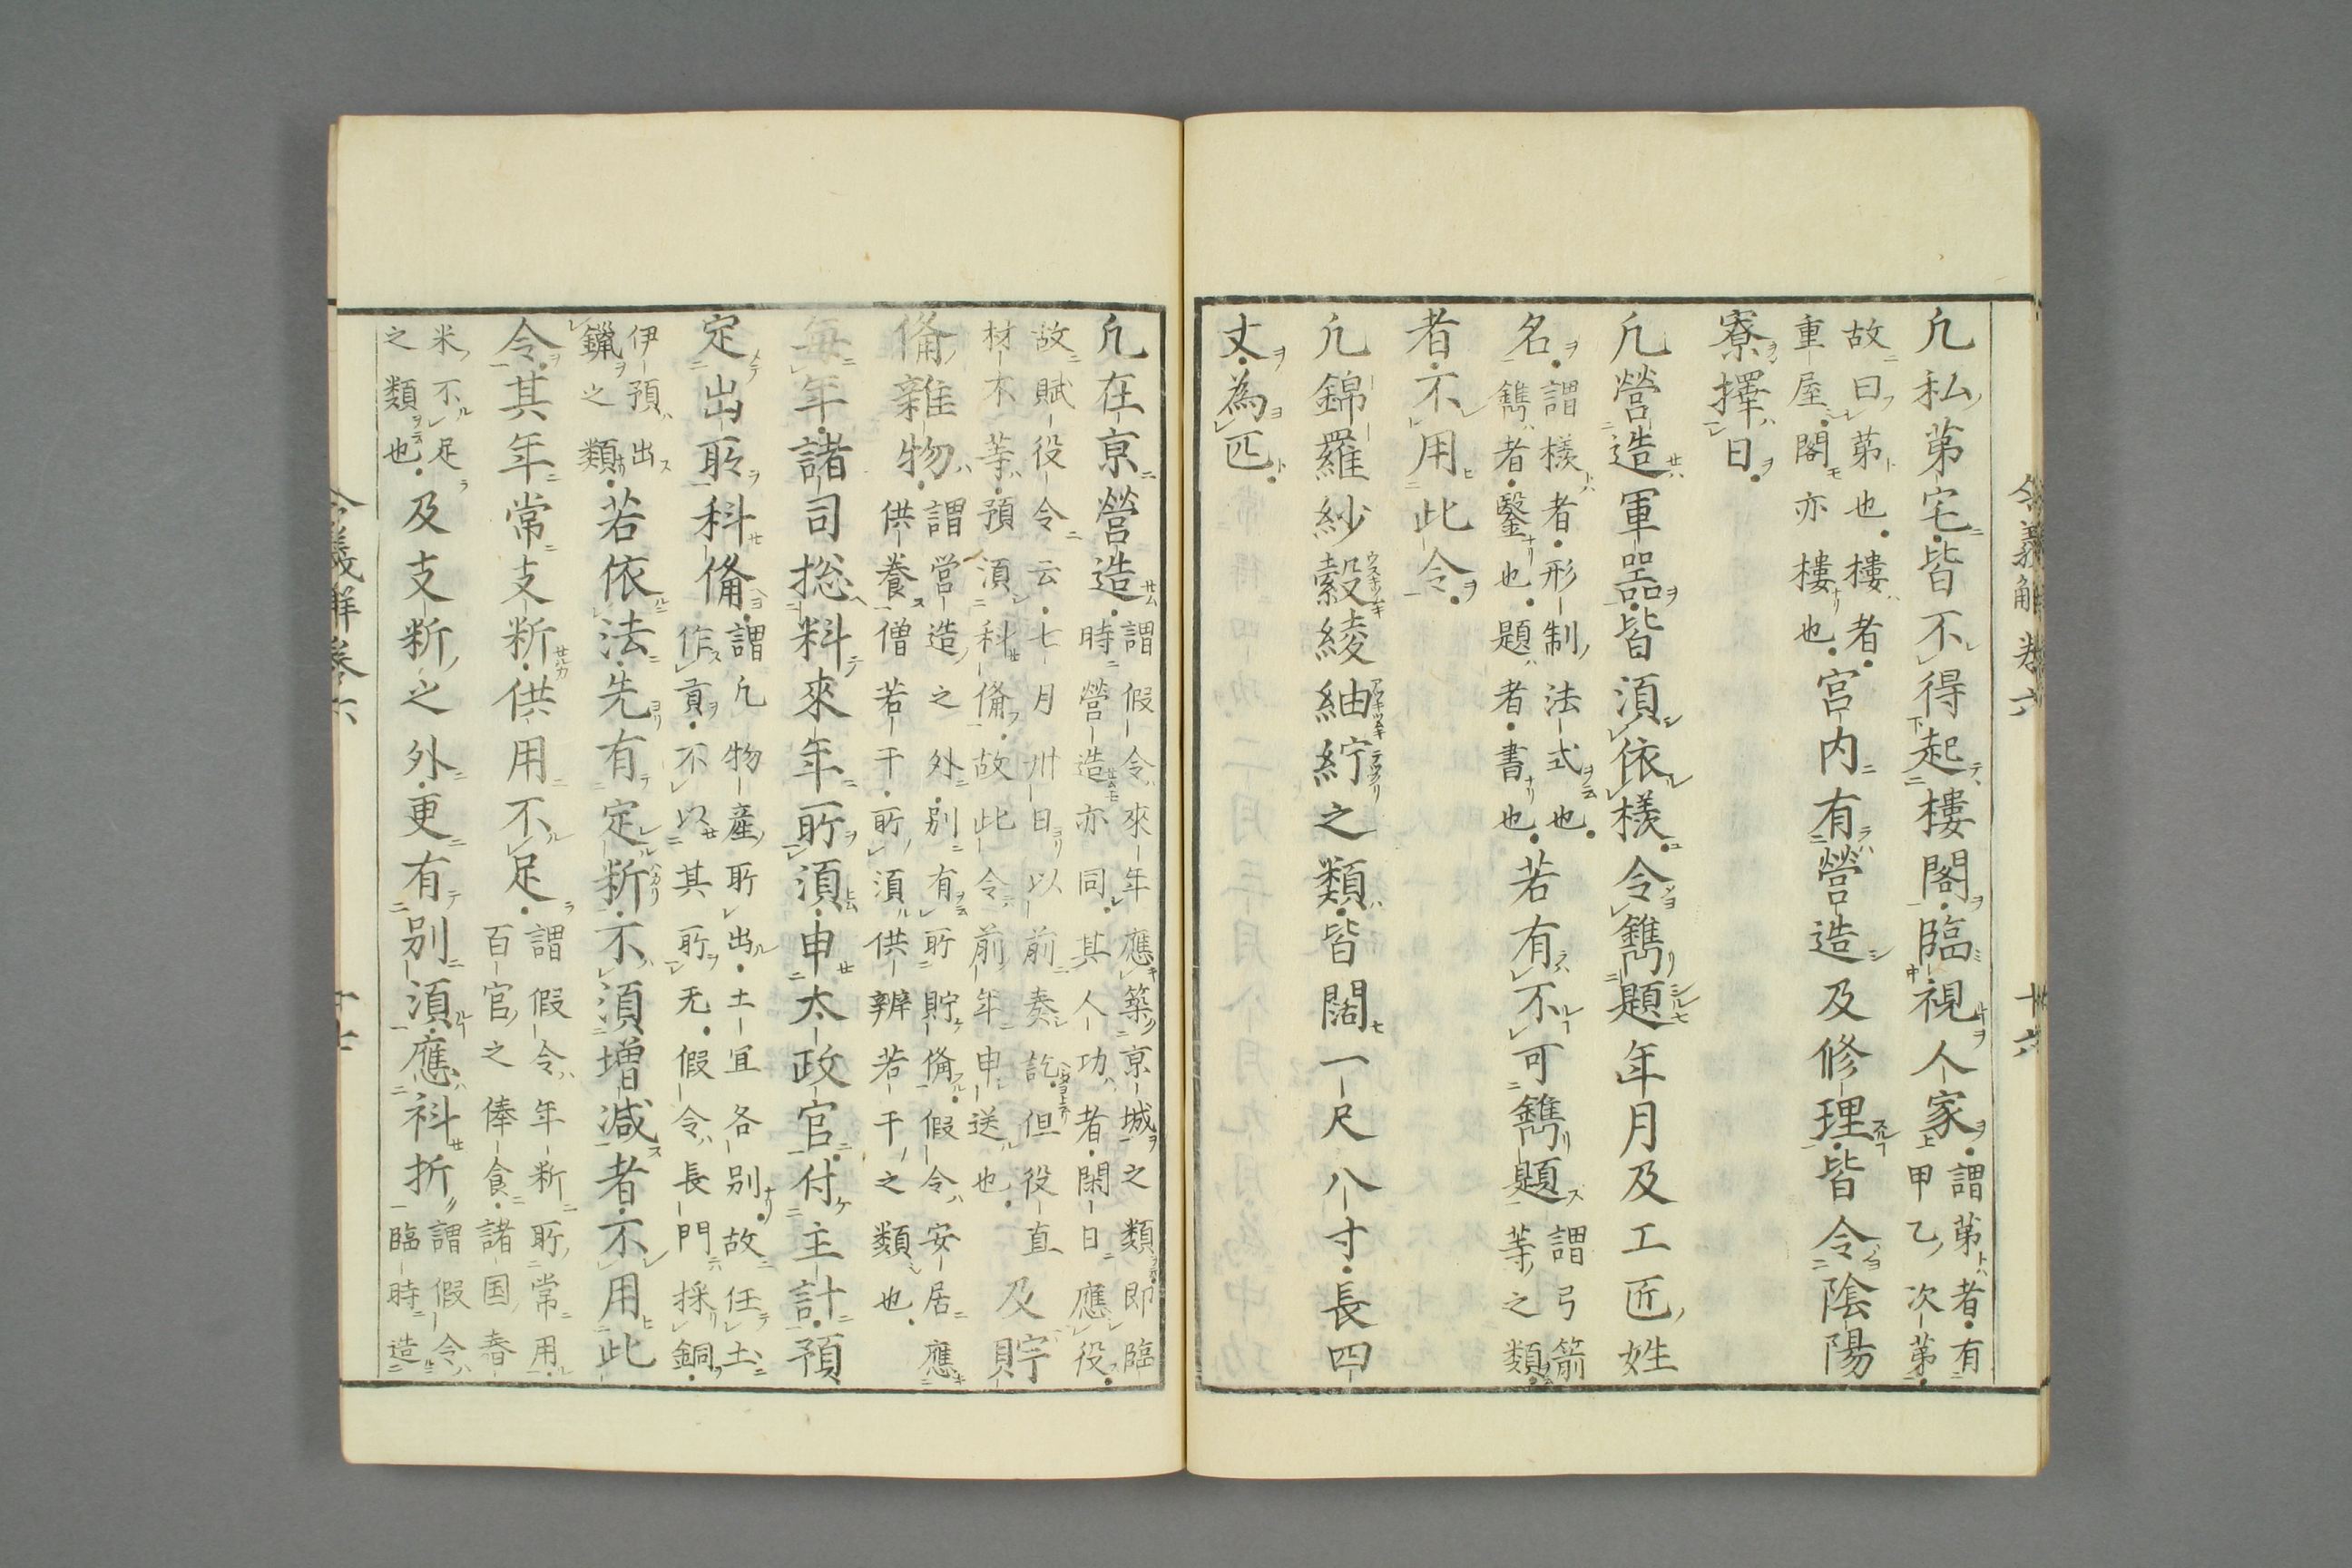 令義解卷六
十六
凡私第宅皆不得起樓閣臨視人家謂第者有
甲乙次第
故曰第也樓者
重屋閣亦樓也宮内有營造及修理皆令陰陽
寮擇日
凡營造軍器皆須依様令鐫題年月及工匠姓
名謂様者形制法式也
鐫者鑿也題者書也若有不可鐫題謂弓箭
等之類
者不用此令
凡錦羅紗縠綾紬紵之類皆闊一尺八寸長四
丈為匹
凡在京營造謂假令來年應築京城之類即臨
時營造亦同其人功者閑日應役
故賦役令云七月卅日以前奏訖但役直
材木等預須科備故此令前年申送也及貯
備雜物謂営造之外別有所貯備假令安居應
供養僧若干所須供辨若干之類也
毎年諸司捴料來年所須申太政官付主計預
定出所科備謂凡物産所出土宜各別故任土
作貢不以其所无假令長門採銅
伊預出
鑞之類若依法先有定断不須増減者不用此
令其年常支断供用不足謂假令年断所常用
百官之俸食諸国舂
米不足
之類也及支断之外更有別須應科折謂假令
臨時造